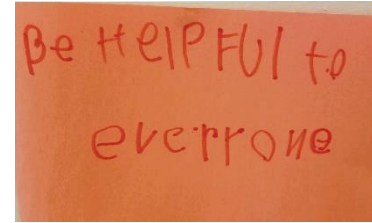 Be HElPFUl to
everrone